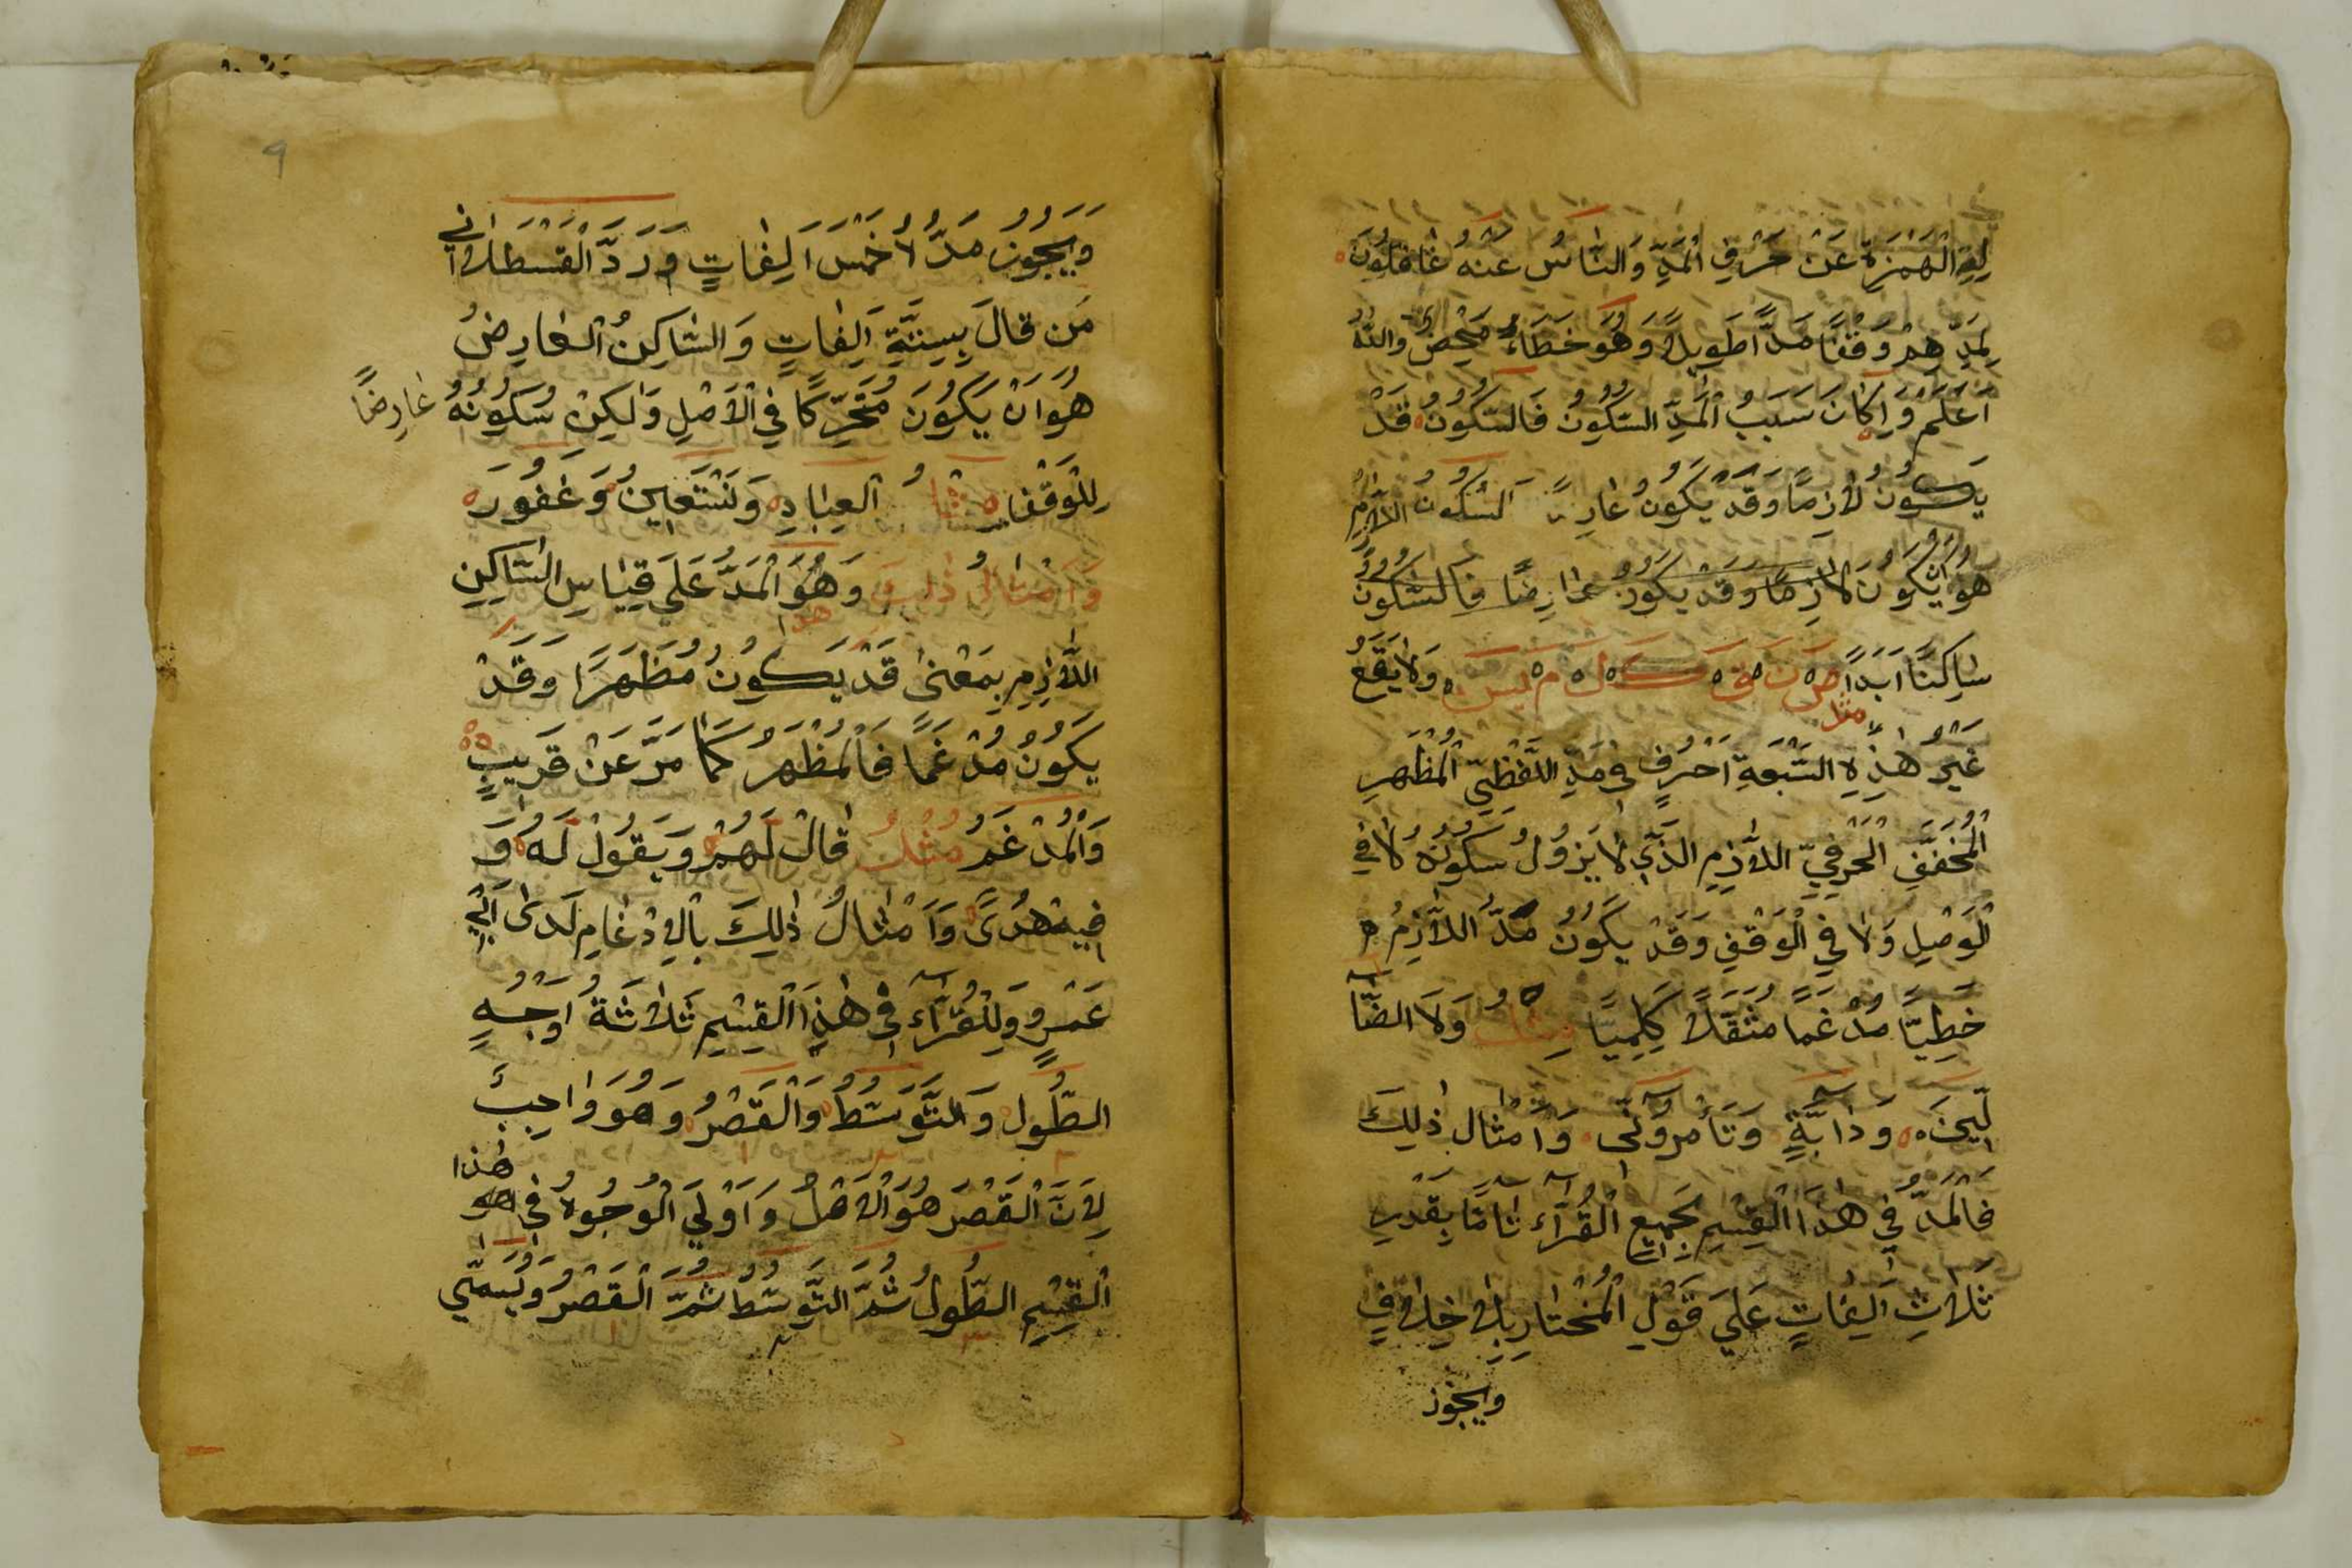 لِغَةِ الْهَمْزَةِ عَنْ حَرْفِ الْمَدِّ وَالنَّاسُ عَنْهُ غَافِلُونَ
لِمَدِّهِمْ وَقْفًا مَدًّا طَوِيلًا وَهُوَ خَطَاءٌ مَحْضٌ وَاللّٰهُ
اَعْلَمُ وَاِكَانَ سَبَبُ الْمَدِّ السُّكُونُ فَالسُّكُونُ قَدْ
يَكُونُ لَازِمًا وَقَدْ يَكُونُ السُّكُونُ اللَّازِمُ
هُوَ اَنْ يَكُونَ لَازِمًا وَقَدْ يَكُونُ عَارِضًا فَالسُّكُونُ
سَاكِنًا اَبَدًا مثل ص ن ق ك ل م س وَلَا يَقَعُ
غَيْرُ هٰذِهِ السَّبْعَةِ اَحْرُفٍ فِي مَدِّ اللَّفْظِيِّ الْمُظْهَرِ
الْمُخَفَّفِ الْحَرْفِيِّ اللَّازِمِ الَّذِي لَا يَزُولُ سُكُونُهُ لَا فِي
الْوَصْلِ وَلَا فِي الْوَقْفِ وَقَدْ يَكُونُ مَدُّ اللَّازِمُ
خَطِّيًّا مُدْغَمًا مُثَقَّلًا كِلِمِيًّا مِثْلُ وَلَا الضَّآ
لِّينَ وَدَابَّةٍ وَتَأْمُرُوٓنِّي وَاَمْثَالُ ذٰلِكَ
فَالْمَدُّ فِي هٰذَا الْقِسْمِ لِجَمِيعِ الْقُرَّآءِ تَامًّا بِقَدْرِ
ثَلَاثِ اَلِفَاتٍ عَلَى قَوْلِ الْمُخْتَارِ بِلَا خِلَافٍ
ويجوز
9
وَيَجُوزُ مَدُّ لَا خَمْسَ اَلِفَاتٍ وَرَدَّ الْقَسْطَلَانِي
مَن قَالَ بِسِتَّةِ اَلِفَاتٍ وَالسَّاكِنُ الْعَارِضُ
هُوَ اَنْ يَكُونَ مُتَحَرِّكًا فِي الْاَصْلِ وَلٰكِنْ سُكُونُهُ عَارِضًا
لِلْوَقْفِ مِثْلُ الْعِبَادِ وَنَسْتَعِينُ وَغَفُورَ
وَاَمْثَالُ ذٰلِكَ وَهُوَ الْمَدُّ عَلَى قِيَاسِ السَّاكِنِ
اللَّازِمِ بِمَعْنٰى قَدْ يَكُونُ مُظْهَرًا وَقَدْ
يَكُونُ مُدْغَمًا فَالْمُظْهَرُ كَمَا مَرَّ عَنْ قَرِيبٍ
وَالْمُدْغَمُ مِثْلُ قَالَ لَهُمْ وَيَقُولُ لَهُ وَ
فِيهِ هُدًى وَاَمْثَالُ ذٰلِكَ بِالْاِدْغَامِ لَدَى اَبِي
عَمْرٍو وَلِلْقُرَّآءِ فِي هٰذَا الْقِسْمِ ثَلَاثَةُ اَوْجُهٍ
الطُّولُ وَالتَّوَسُّطُ وَالْقَصْرُ وَهُوَ وَاجِبٌ
لِاَنَّ الْقَصْرَ هُوَ الْاَصْلُ وَاَوْلَى الْوُجُوهُ فِي هٰذا
الْقِسْمِ الطُّولُ ثُمَّ التَّوَسُّطُ ثُمَّ الْقَصْرُ وَيُسَمّٰي